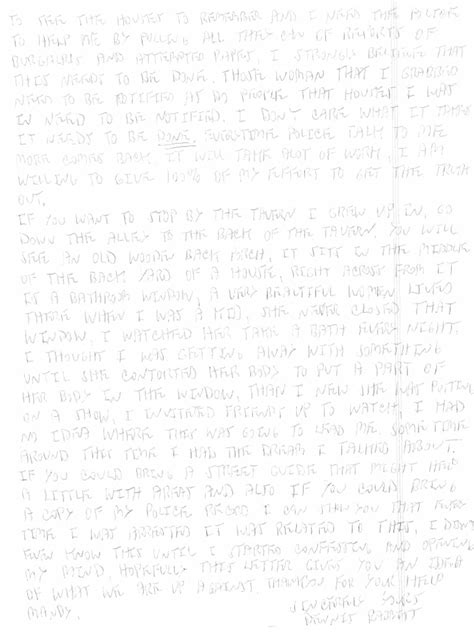 TO SEE THE HOUSES TO REMEMBER AND I NEED THE POLICE
TO HELP ME BY PULLING ALL THEY CAN OF REPORTS OF
BURGLRLYS AND ATTEMPTED RAPES, I STRONGLY BELIEVE THAT
THIS NEEDS TO BE DONE. THOSE WOMAN THAT I GRABBED
NEED TO BE NOTIFIED AS DO PEOPLE THAT HOUSES I WAS
IN NEED TO BE NOTIFIED. I DON'T CARE WHAT IT TAKES
IT NEEDS TO BE DONE. EVERYTIME POLICE TALK TO ME
MORE COMES BACK. IT WILL TAKE ALOT OF WORK, I AM
WILLING TO GIVE 100% OF MY EFFORT TO GET THE TRUTH
OUT.
IF YOU WANT TO STOP BY THE TAVERN I GREW UP IN, GO
DOWN THE ALLEY TO THE BACK OF THE TAVERN. YOU WILL
SEE AN OLD WOODEN BACK PORCH, IT SITS IN THE MIDDLE
OF THE BACK YARD OF A HOUSE, RIGHT ACROSS FROM IT
IS A BATHROOM WINDOW, A VERY BEAUTIFUL WOMEN LIVED
THERE WHEN I WAS A KID, SHE NEVER CLOSED THAT
WINDOW. I WATCHED HER TAKE A BATH EVERY NIGHT.
I THOUGHT I WAS GETTING AWAY WITH SOMETHING
UNTIL SHE CONTORTED HER BODY TO PUT A PART OF
HER BODY IN THE WINDOW, THAN I NEW SHE WAS PUTING
ON A SHOW, I INVITED FRIENDS UP TO WATCH, I HAD
NO IDEA WHERE THIS WAS GOING TO LEAD ME. SOME TIME
AROUND THIS TIME I HAD THE DREAM I TALKED ABOUT.
IF YOU COULD BRING A STREET GUIDE THAT MIGHT HELP
A LITTLE WITH AREAS AND ALSO IF YOU COULD BRING
A COPY OF MY POLICE RECORD I CAN SHOW YOU THAT EVERY
TIME I WAS ARRESTED IT WAS RELATED TO THIS, I DIDN'T
EVEN KNOW THIS UNTIL I STARTED CONFESTING AND OPENING
MY MIND, HOPEFULLY THIS LETTER GIVES YOU AN IDEA
OF WHAT WE ARE UP AGAINST. THANKYOU FOR YOUR HELP
MANDY.
SINCERELY YOURS
DENNIS RABBITT